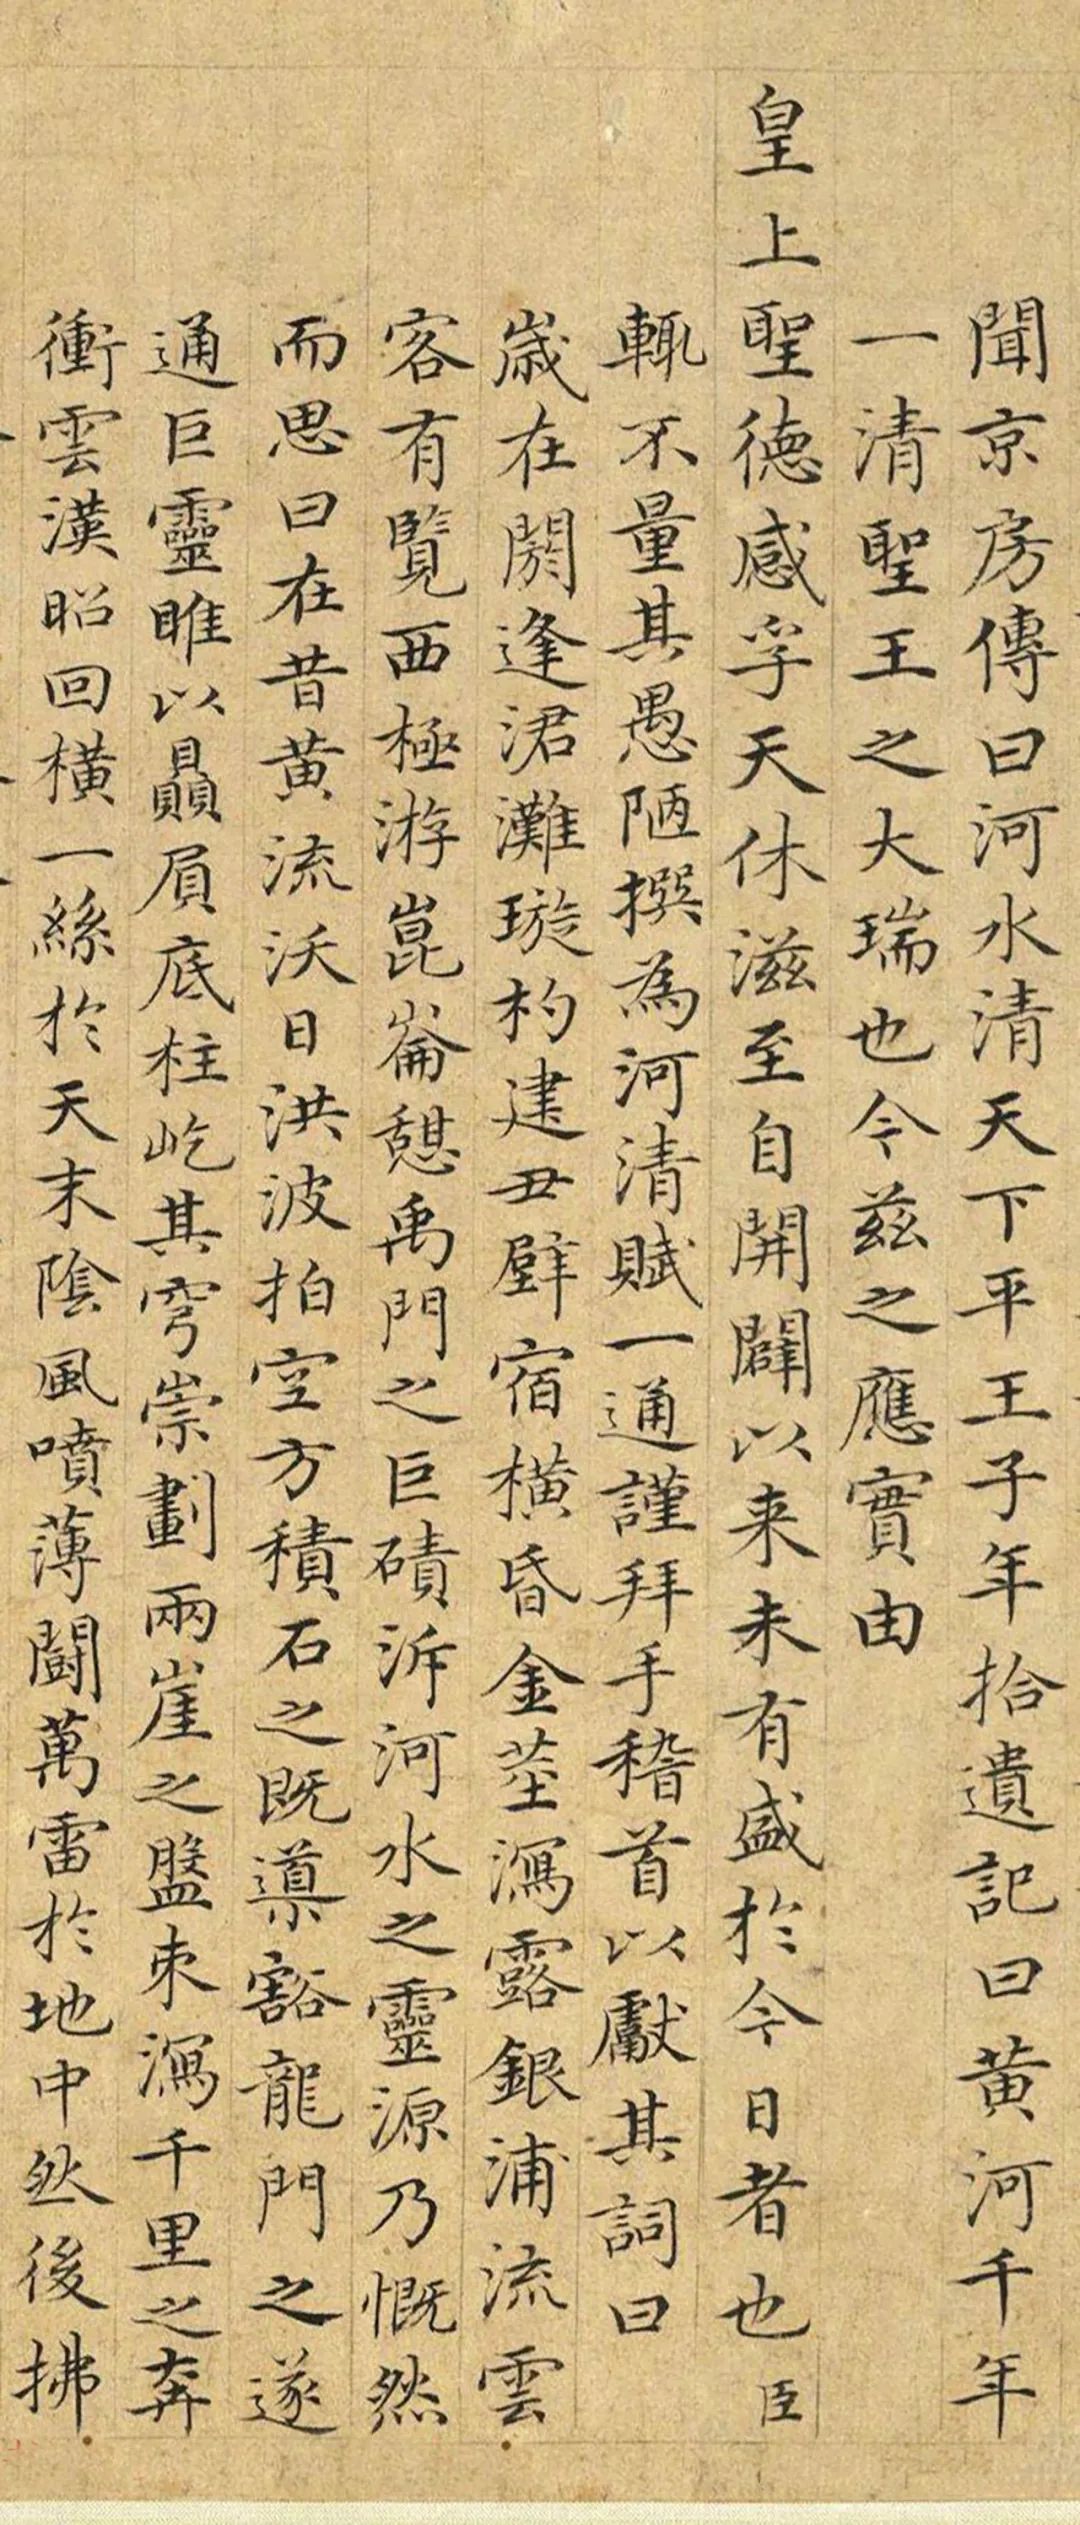 聞京房傳曰河水清天下平王子年拾遺記曰黃河千年
一清聖王之大瑞也今茲之應實由
皇上聖德感孚天休滋至自開闢以来未有盛於今日者也臣
輙不量其愚陋撰為河清賦一通謹拜手稽首以獻其詞曰
歲在閼逢涒灘璇杓建丑壁宿橫昏金莖瀉露銀浦流雲
客有覽西極游崑崙憩禹門之巨磧泝河水之靈源乃慨然
而思曰在昔黃流沃日洪波拍空方積石之既導豁龍門之遂
通巨靈睢以贔屓底柱屹其穹崇劃兩崖之盤束瀉千里之奔
衝雲漢昭回橫一絲於天末陰風噴薄鬭萬雷於地中然後拂